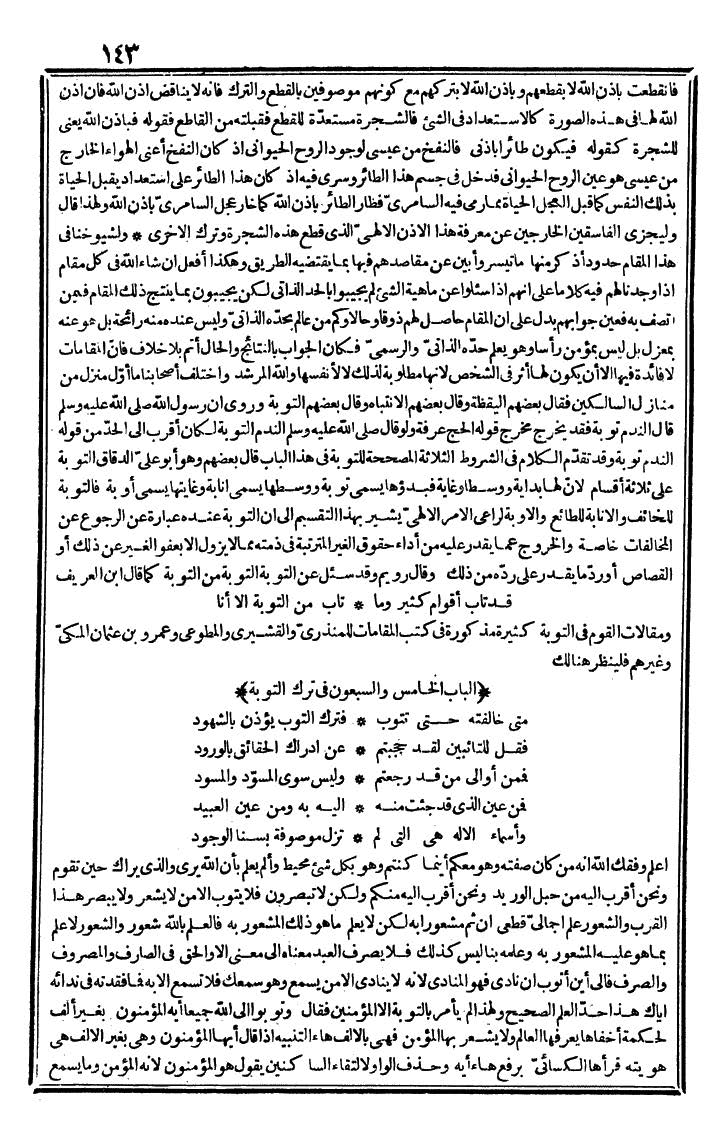 ١٤٣
فانقطعت باذن الله لا بقطعهم وباذن الله لا بتركهم مع كونهم موصوفين بالقطع والترك فانه لا يناقض اذن الله فان اذن
الله لها فى هذه الصورة كالاستعداد فى الشئ فالشجرة مستعدّة للقطع فقبلته من القاطع فقوله فباذن الله يعنى
للشجرة كقوله فيكون طائرا باذنى فالنفخ من عيسى لوجود الروح الحيوانى اذ كان النفخ أعنى الهواء الخارج
من عيسى هو عين الروح الحيوانى فدخل فى جسم هذا الطائر وسرى فيه اذ كان هذا الطائر على استعداد يقبل الحياة
بذلك النفس كما قبل العجل الحياة بما رمى فيه السامرىّ فطار الطائر باذن الله كما خار عجل السامرىّ باذن الله ولهذا قال
وليجزى الفاسقين الخارجين عن معرفة هذا الاذن الالهىّ الذى قطع هذه الشجرة وترك الاخرى * ولشيوخنا فى
هذا المقام حدود أذكر منها ما تيسر وأبين عن مقاصدهم فيها بما يقتضيه الطريق وهكذا أفعل ان شاء الله فى كل مقام
اذا وجدنا لهم فيه كلاما على انهم اذا سئلوا عن ماهية الشئ لم يجيبوا بالحد الذاتى لكن يجيبون بما ينتج ذلك المقام فيمن
اتصف به فعين جوابهم يدل على ان المقام حاصل لهم ذوقا وحالا وكم من عالم بحدّه الذاتىّ وليس عنده منه رائحة بل هو عنه
بمعزل بل ليس بمؤمن رأسا وهو يعلم حدّه الذاتىّ والرسمىّ فكان الجواب بالنتائج والحال أتم بلا خلاف فانّ المقامات
لا فائدة فيها الا أن يكون لها أثر فى الشخص لانها مطلوبة لذلك لا لأنفسها والله المرشد واختلف أصحابنا ما أوّل منزل من
منازل السالكين فقال بعضهم اليقظة وقال بعضهم الانتباه وقال بعضهم التوبة وروى ان رسول الله صلى الله عليه وسلم
قال الندم توبة فقد يخرج مخرج قوله الحج عرفة ولو قال صلى الله عليه وسلم الندم التوبة لكان أقرب الى الحدّ من قوله
الندم توبة وقد تقدّم الكلام فى الشروط الثلاثة المصححة للتوبة فى هذا الباب قال بعضهم وهو أبو علىّ الدقاق التوبة
على ثلاثة أقسام لانّ لها بداية ووسطا وغاية فبدؤها يسمى توبة ووسطها يسمى انابة وغايتها يسمى أوبة فالتوبة
للخائف والانابة للطائع والاوبة لراعى الامر الالهىّ يشير بهذا التقسيم الى ان التوبة عنده عبارة عن الرجوع عن
المخالفات خاصة والخروج عما يقدر عليه من أداء حقوق الغير المترتبة فى ذمته مما لا يزول الا بعفو الغير عن ذلك أو
القصاص أو ردّ ما يقدر على ردّه من ذلك وقال رويم وقد سئل عن التوبة التوبة من التوبة كما قال ابن العريف
قد تاب أقوام كثير وما * تاب من التوبة الا أنا
ومقالات القوم فى التوبة كثيرة مذكورة فى كتب المقامات للمنذرىّ والقشيرى والمطوعى وعمرو بن عثمان المكىّ
وغيرهم فلينظر هنالك
﴿الباب الخامس والسبعون فى ترك التوبة﴾
متى خالفته حتى تتوب * فترك التوب يؤذن بالشهود
فقل للتائبين لقد حجبتم * عن ادراك الحقائق بالورود
فمن أوالى من قد رجعتم * وليس سوى المسوّد والمسود
فمن عين الذى قد جئت منه * اليه به ومن عين العبيد
وأسماء الاله هى التى لم * تزل موصوفة بسنا الوجود
اعلم وفقك الله انه من كان صفته وهو معكم أينما كنتم وهو بكل شئ محيط وألم يعلم بأن الله يرى والذى يراك حين تقوم
ونحن أقرب اليه من حبل الوريد ونحن أقرب اليه منكم ولكن لا تبصرون فلا يتوب الا من لا يشعر ولا يبصر هذا
القرب والشعور علم اجمالىّ قطعى ان ثم مشعورا به لكن لا يعلم ما هو ذلك المشعور به فالعلم بالله شعور والشعور لا علم
بما هو عليه المشعور به وعلمه بنا ليس كذلك فلا يصرف العبد معناه الى معنى الا والحق فى الصارف والمصروف
والصرف فالى أين أتوب ان نادى فهو المنادى لانه لا ينادى الا من يسمع وهو سمعك فلا تسمع الا به فما فقدته فى ندائه
اياك هذا حدّ العلم الصحيح ولهذا لم يأمر بالتوبة الا المؤمنين فقال وتوبوا الى الله جميعا أيه المؤمنون بغير ألف
لحكمة أخفاها يعرفها العالم ولا يشعر بها المؤمن فهى بالالف هاء التنبيه اذا قال أيها المؤمنون وهى بغير الالف هى
هويته قرأها الكسائىّ برفع هاء أيه وحذف الواو لالتقاء الساكنين يقول هو المؤمنون لانه المؤمن وما يسمع